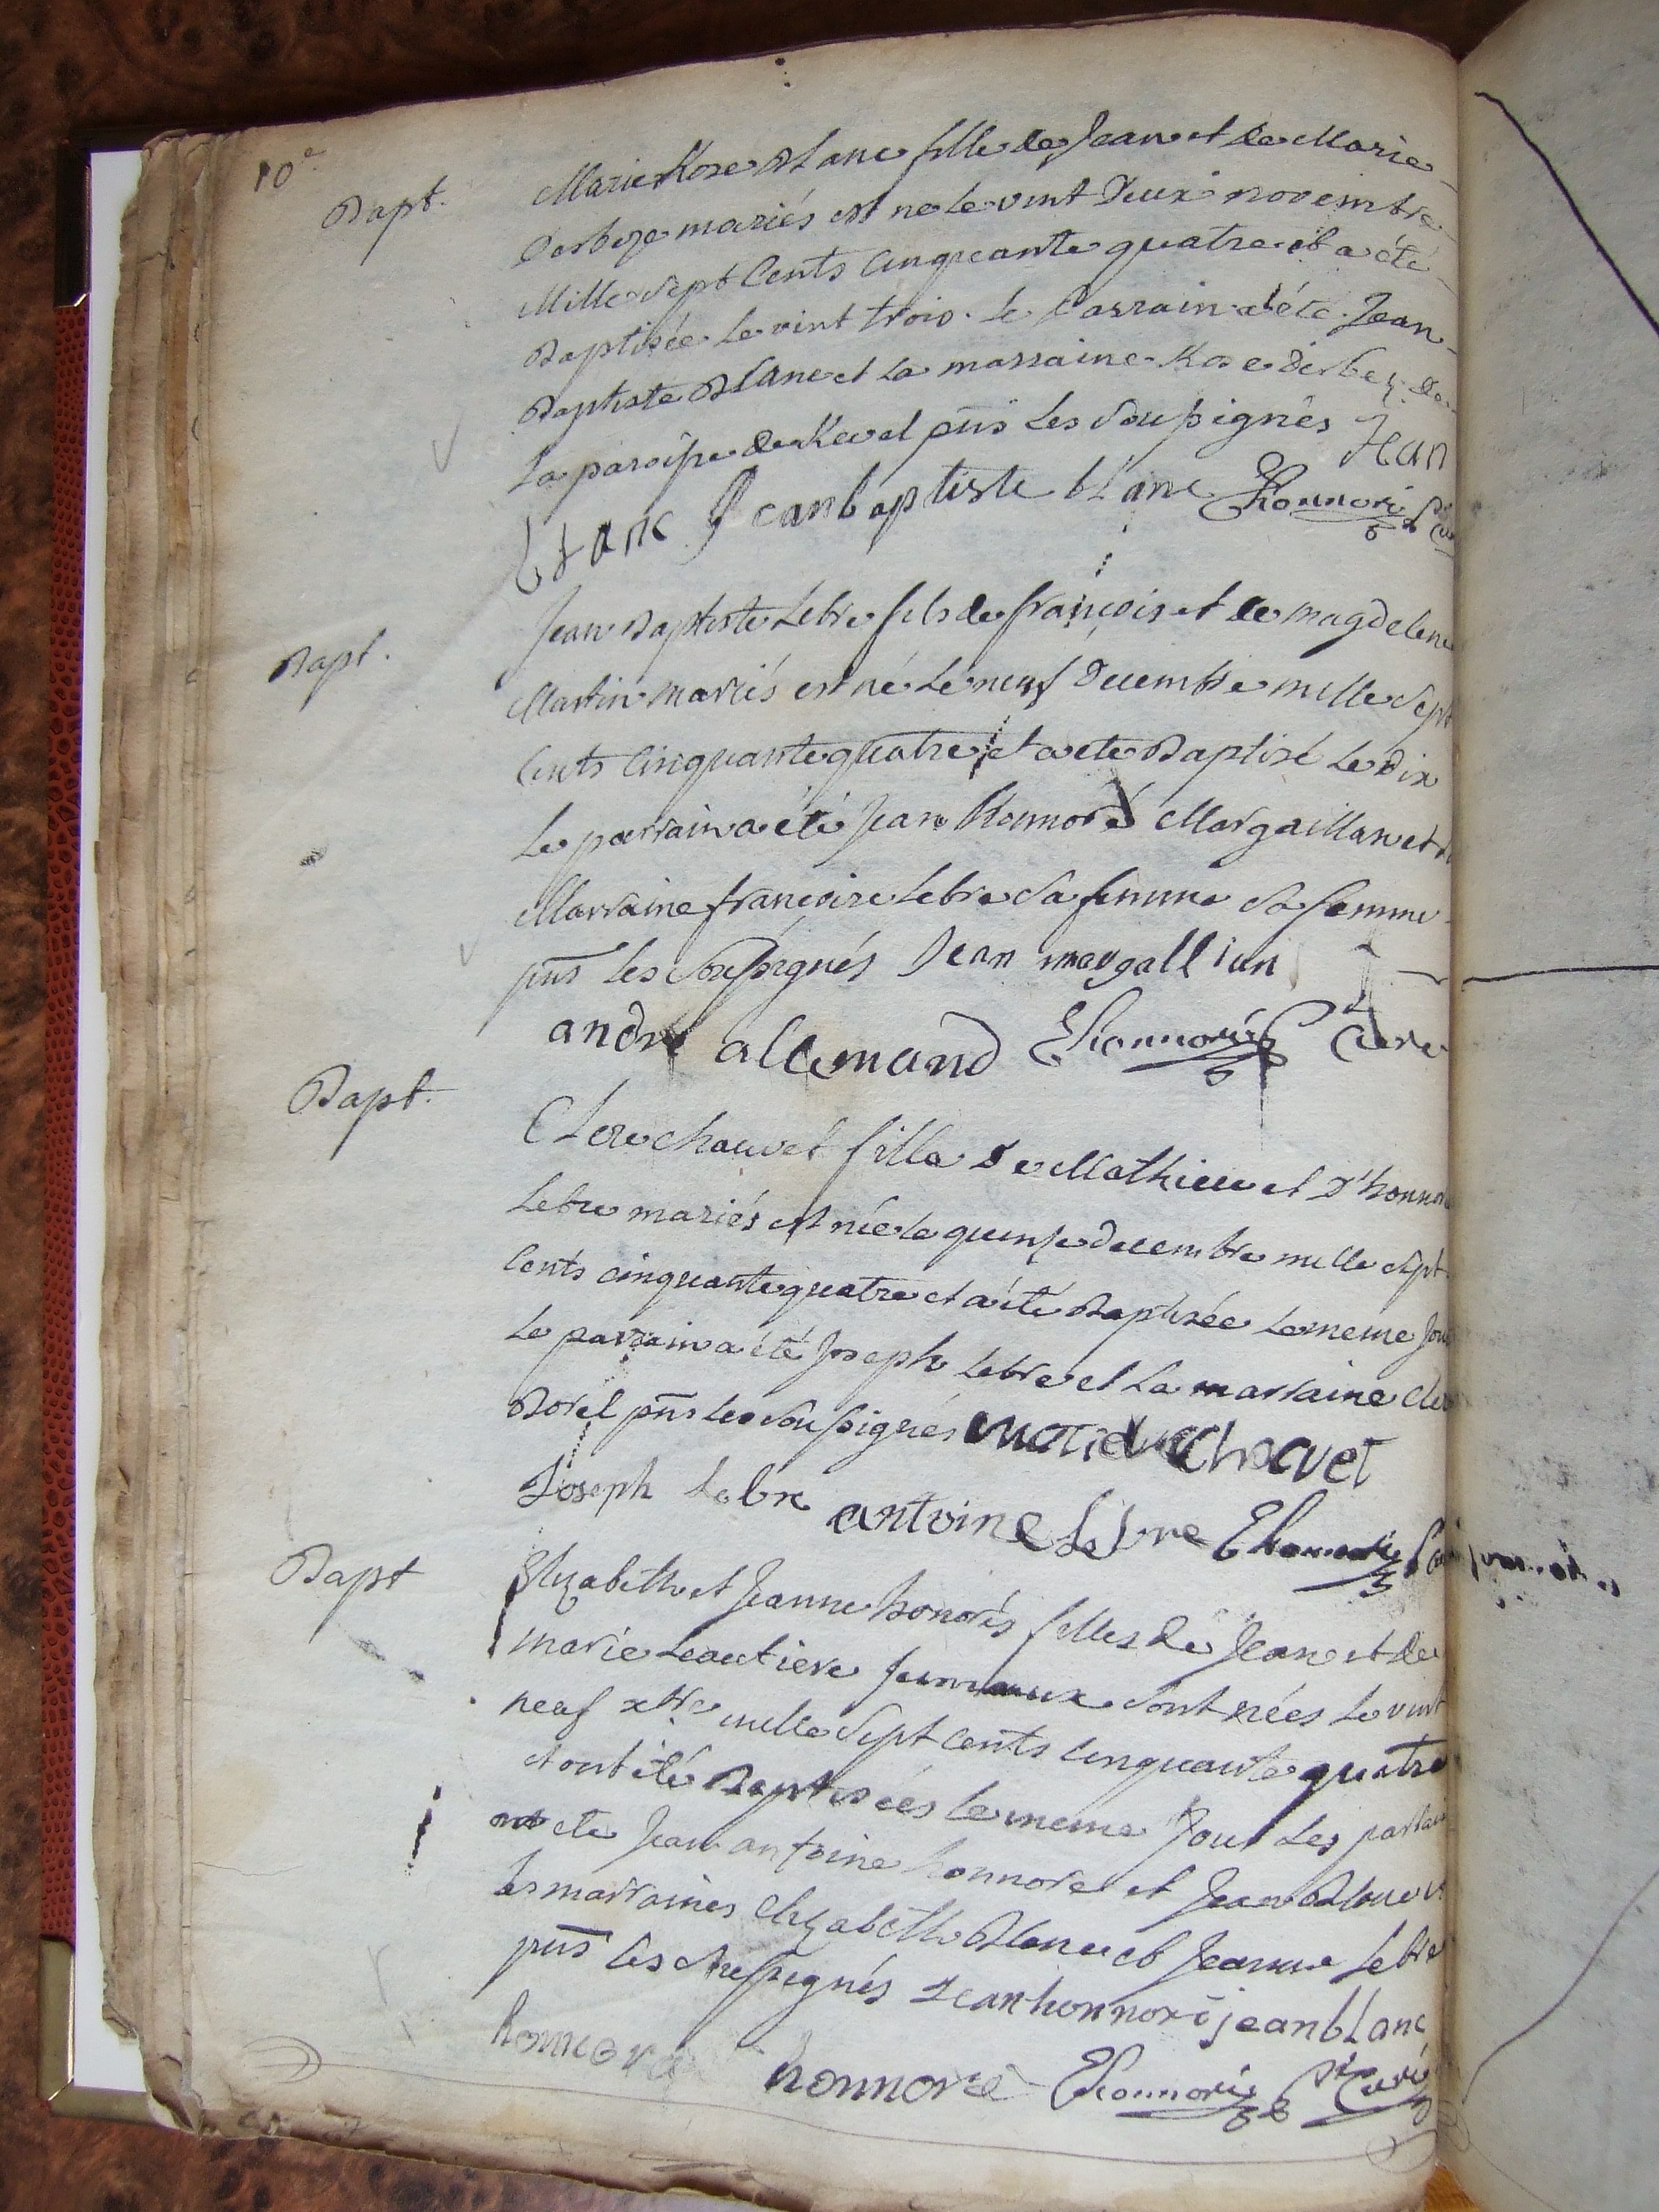 10e
Bapt. Marie Rose Blanc fille de Jean et de Marie
Derbeze mariés est née le vint deux novembre
Mille Sept Cents Cinqcante quatre et a été
Baptisée le vint trois. le Parrain a été Jean
Baptiste Blanc et la marraine Rose Derbez de
la paroisse de Revel pñs les soussignés Jean
blanc Jeanbaptiste blanc EHonnoré Pr Curé
Bapt. Jean Baptiste Lebre fils de françois et de magdelene
Martin mariés est né le neuf Decembre mille Sept
Cents Cinquante quatre et a eté Baptisé le dix
le parrain a été Jean Honnoré Margaillan et la
Marraine françoise Lebre sa femme sa femme
pñs les soussignés Jean margallian
andré allemand EHonnoré Pr Curé
Bapt. Clere chauvet fille de Mathieu et d'honnorade
Lebre mariés est née le quinze decembre mille sept
Cents cinquante quatre et a été Baptisée le meme jour
le parrain a été Joseph Lebre et la marraine Clere
Borel pñs les soussignés chavet
Joseph Lebre antoine Lebre EHonnoré Pr Curé
Bapt Elizabeth et Jeanne honorés filles de Jean et de
marie Leautiere jumeaux sont nées le vint
neuf xbre mille Sept Cents cinquante quatre
et ont été Baptisées le meme Jour Les parrains
ont eté Jean antoine honnoré et Jean Blanc et
les marraines Elizabeth Blanc et Jeanne Lebre
pñs les soussignés Jean honnoré jean blanc
honnoré honnoré EHonnoré Pr Curé